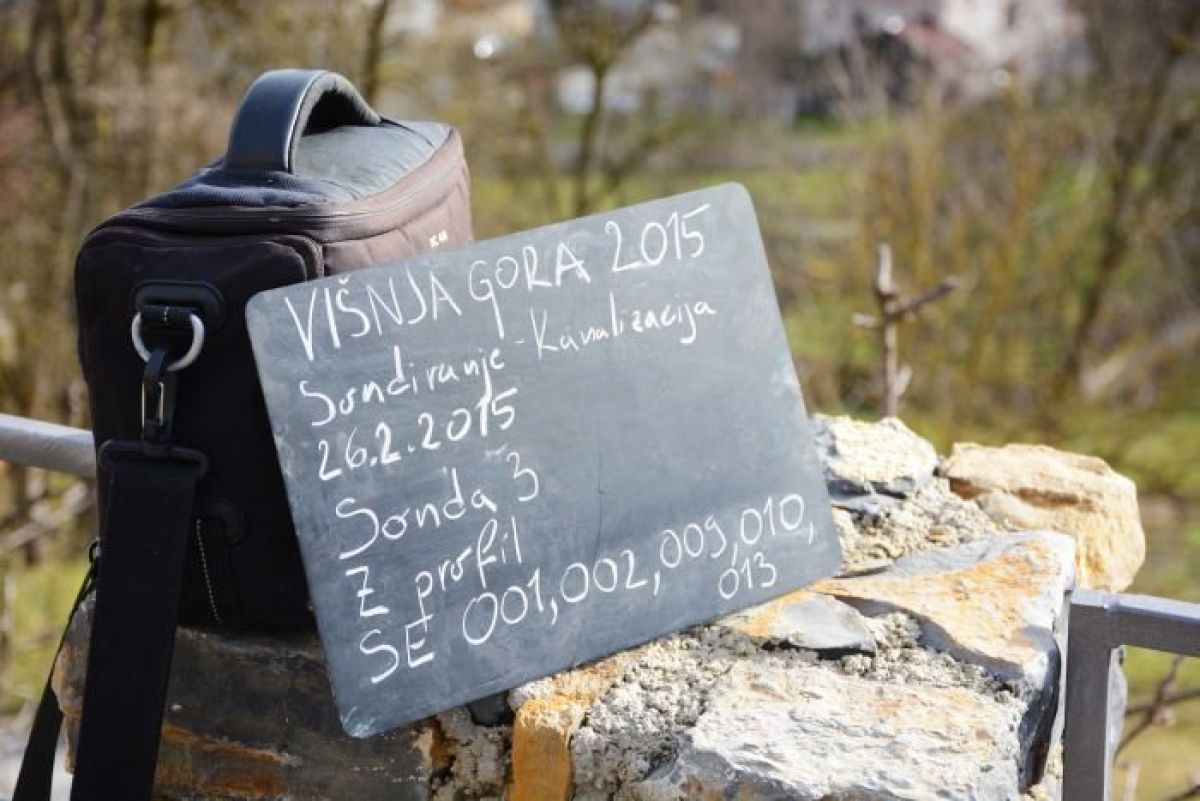 VIŠNJA GORA 2015
Sondiranje - Kanalizacija
26.2.2015
Sonda 3
Z profil
SE 001, 002, 009, 010,
013